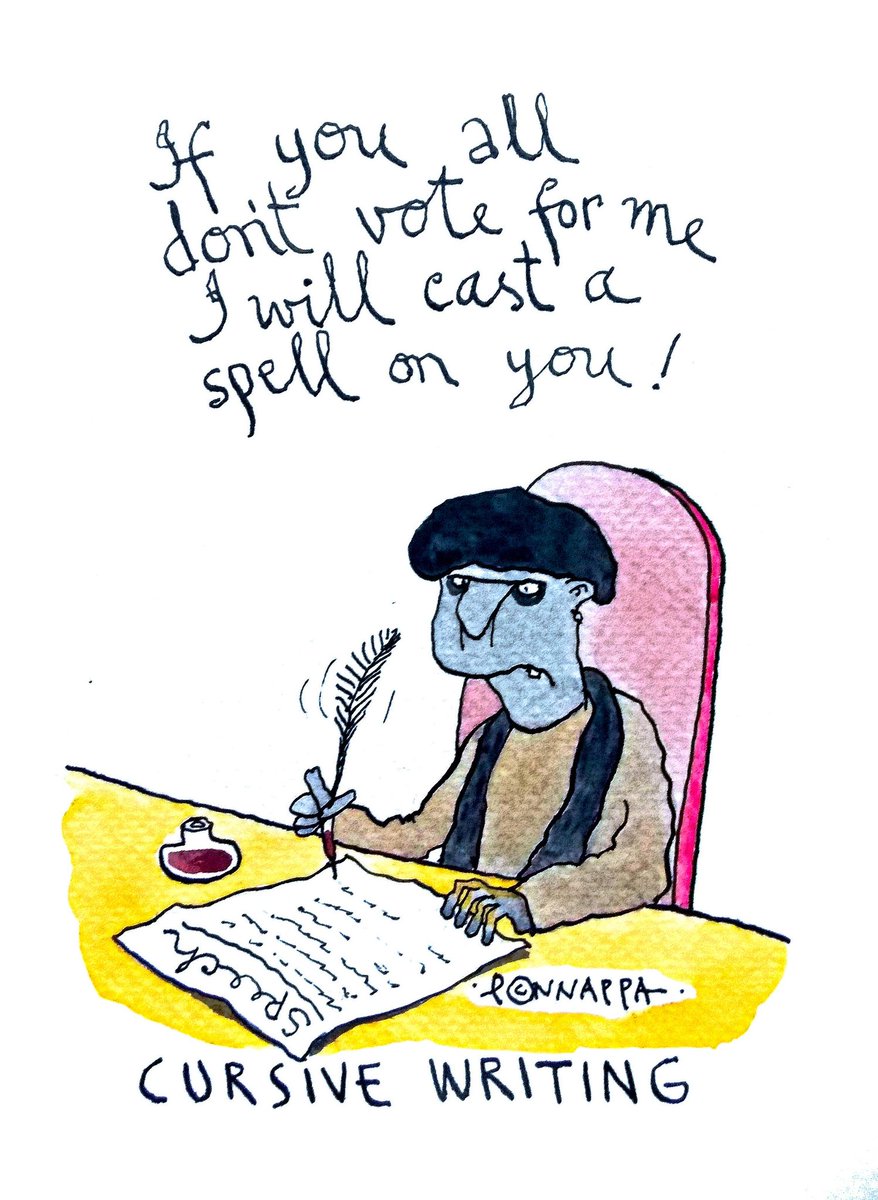 If you all
don't vote for me
I will cast a
spell on you!
speech
·PONNAPPA·
CURSIVE WRITING